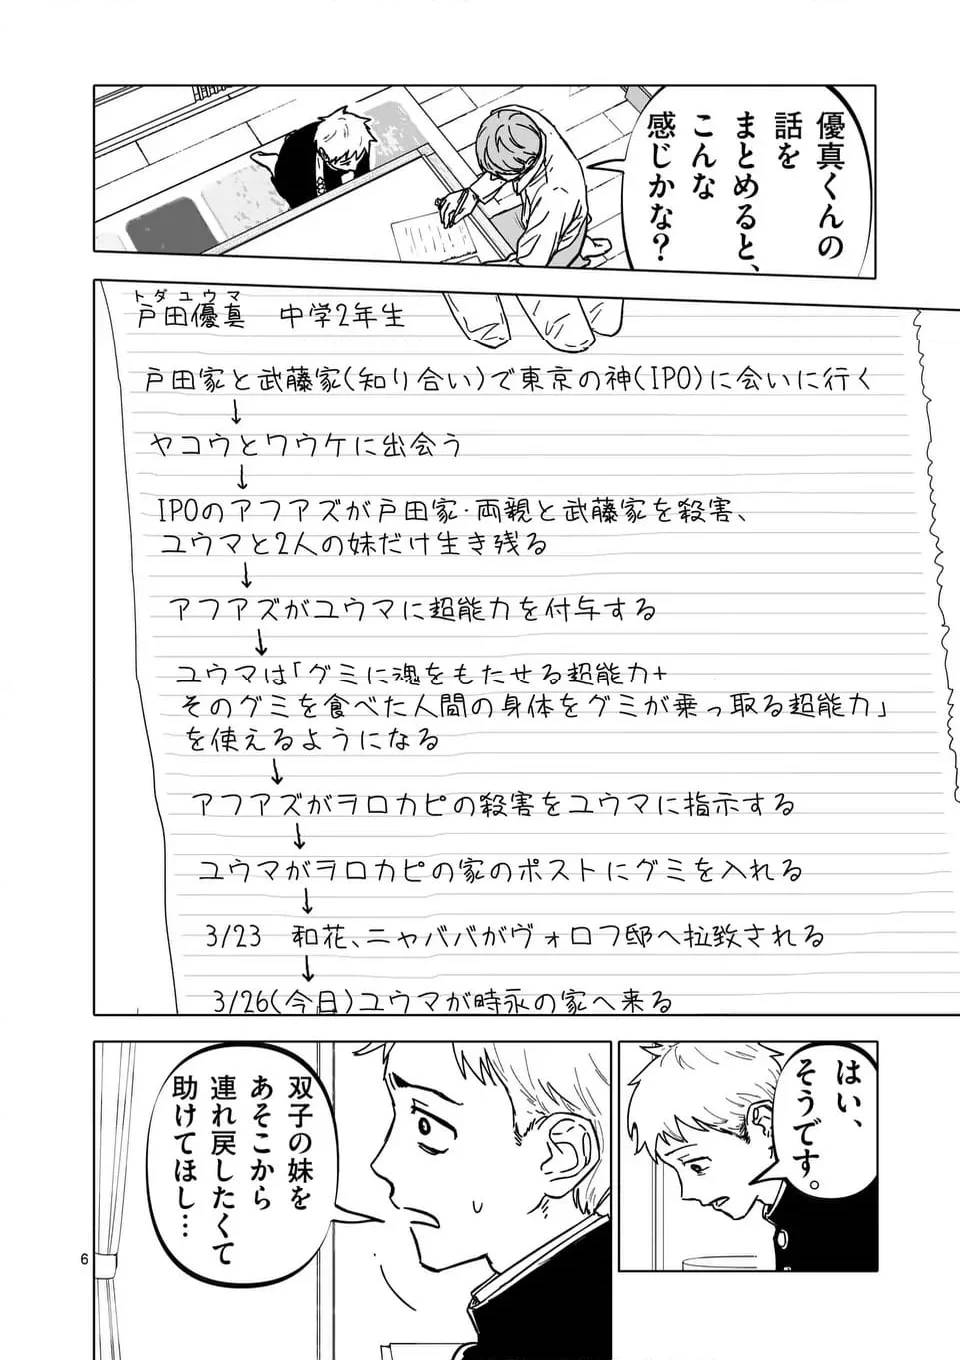 優真くんの
話を
まとめると、
こんな
感じかな？
トダユウマ
戸田優真　中学2年生
戸田家と武藤家(知り合い)で東京の神(IPO)に会いに行く
↓
ヤコウとワウケに出会う
↓
IPOのアフアズが戸田家・両親と武藤家を殺害、
ユウマと2人の妹だけ生き残る
↓
アフアズがユウマに超能力を付与する
↓
ユウマは「グミに魂をもたせる超能力+
そのグミを食べた人間の身体をグミが乗っ取る超能力」
を使えるようになる
↓
アフアズがヲロカピの殺害をユウマに指示する
↓
ユウマがヲロカピの家のポストにグミを入れる
↓
3/23　和花、ニャババがヴォロフ邸へ拉致される
↓
3/26(今日)ユウマが時永の家へ来る
はい、
そうです。
双子の妹を
あそこから
連れ戻したくて
助けてほし…
6